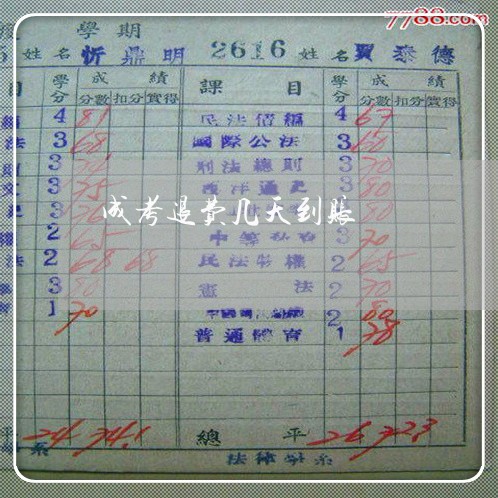 7788.com
學期
姓名 忻鼎明 2616 姓名 賈泰德
目 學分 成績 課目 學分 成績
分數 扣分 實得 分數 扣分 實得
4 81 民法債編 4 67
法 3 68 國際公法 3 60
3 刑法總則 3 70
3 75 西洋通史 3 80
3 3 80
成考退费几天到账
2 65 3 70
法 2 68 68 民法物權 2 65
3 80 憲法 2 70
1 70 2 80
普通體育 1 78
平 24 74.1 總平 26 72.3
系 法律學系